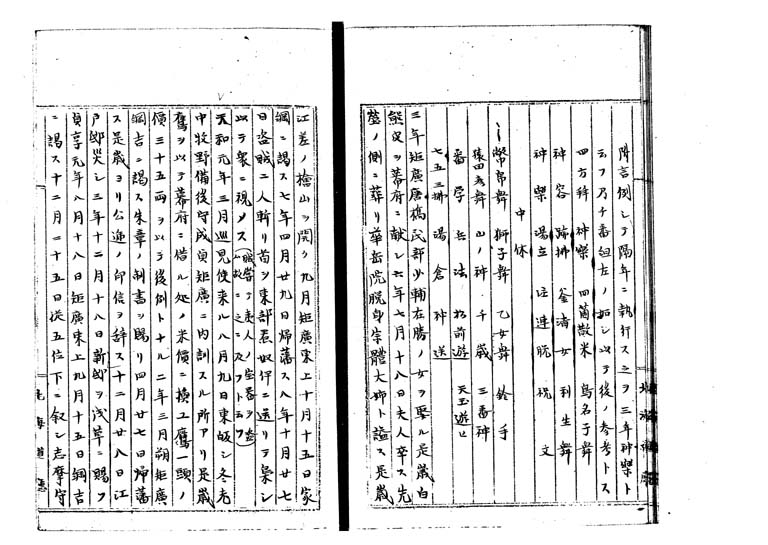 降吉例トシテ隔年ニ執行ス之ヲ三年神樂ト
云フ乃チ番組左ノ如シ以テ後ノ参考トス
四方拜 神樂 四箇散米 鳥名子舞
神容 跡拂 釜清女 到生舞
神樂 湯立 注連脱 祝文
中休
幣帛舞 獅子舞 乙女舞 鈴手
猿田彦舞 山ノ神 千歳 三番神
番学 兵法 松前遊 天王遊ヒ
七五三拂 湯倉 神送
三年矩廣唐橋民部少輔在勝ノ女ヲ娶ル是歳白
熊皮ヲ幕府ニ献シ六年七月十八日夫人卒ス先
塋ノ側ニ葬リ華岳院脱身宗體大姉ト謚ス是歳
江差ノ檜山ヲ開ク九月矩廣東上十月十五日家
綱ニ謁ス七年四月廿九日帰藩ス八年十月廿七
日盗賊二人斬リ首ヲ東部 ニ送リテ梟シ
以テ衆ニ視メス
天和元年三月巡見使来ル八月九日東 シ冬老
中牧野備後守成貞矩廣ニ内訓スル所アリ是歳
鷹ヲ以テ幕府ニ借ル処ノ米價ニ換ユ鷹一頭ノ
價三十五両ヲ以テ後例トナル二年三月朔矩廣
綱吉ニ謁ス朱章ノ制書ヲ賜リ四月廿七日帰藩
ス是歳ヨリ公逓ノ印信ヲ辞ス十二月廿八日江
戸邸災シ三年十二月十八日新邸ヲ浅草ニ賜フ
貞享元年八月十八日矩廣東上九月十五日綱吉
ニ謁ス十二月二十五日従五位下ニ叙シ志摩守
北海道廳